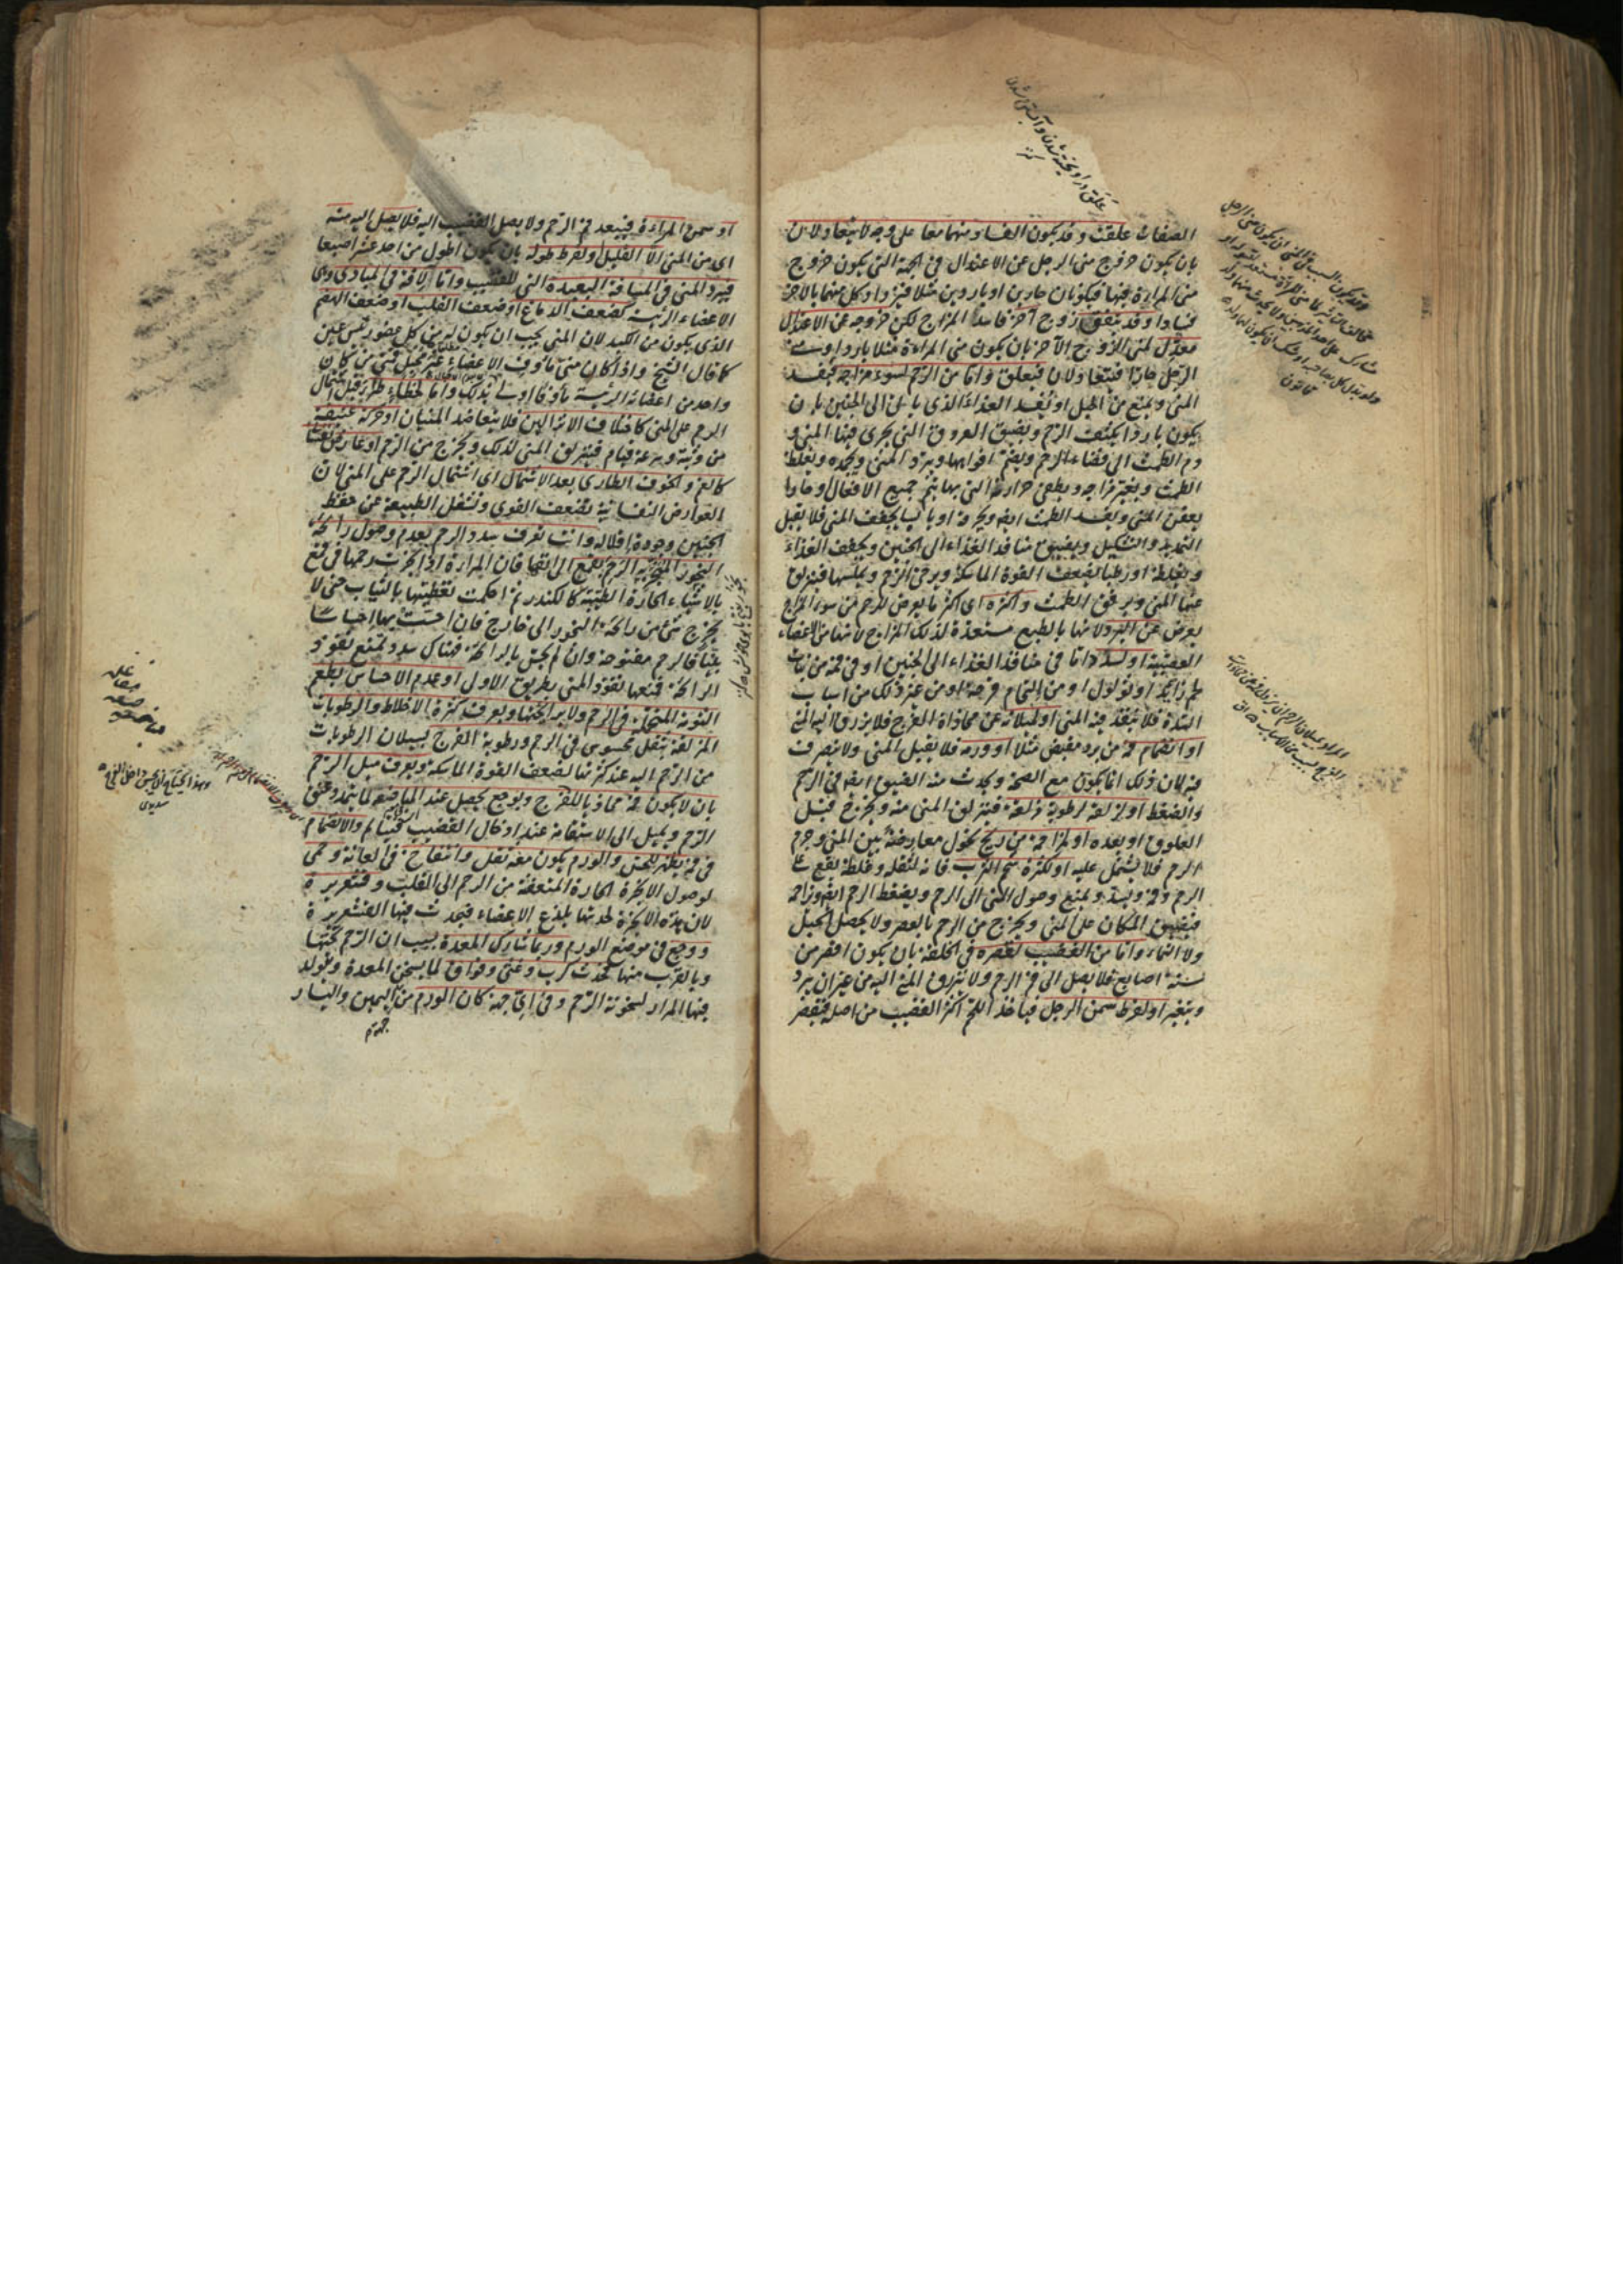 الصفات علقت وقد يكون الفساد منهما معا على وجه لا يتعادلان
بان يكون خروج منى الرجل عن الاعتدال فى الجهة التى يكون خروج
منى المراءة فيها فيكونان حارين او باردين مثلا فيزداد كل منهما بالاخر
فسادا وقد يتفق زوج آخر فاسد المزاج لكن خروجه عن الاعتدال
معدل لمنى الزوج الآخر بان يكون منى المراءة مثلا باردا ومنى
الرجل حارا فيتعادلان فيعلق واما من الرحم لسوء مزاجه فيفسد
المنى ويمنع من الحبل او يفسد الغذاء الذى ياتى الى الجنين بان
يكون باردا يكثف الرحم ويضيق العروق التى يجرى فيها المنى و
دم الطمث الى فضاء الرحم ويضم افواهها ويبرد المنى ويجمده ويغلظ
الطمث ويغير مزاجه ويطفى حرارته التى بها يتم جميع الافعال وحارا
يعفن المنى ويفسد الطمث ايضا ويحرقه او يابسا يجفف المنى فلا يقبل
التمديد والتشكيل ويضيق منافذ الغذاء الى الجنين ويجفف الغذاء
ويغلظه او رطبا يضعف القوة الماسكة ويرخى الرحم ويملسها فينزلق
عنها المنى ويرقق الطمث واكثره اى اكثر ما يعرض للرحم من سوء المزاج
يعرض عن البرد لانها بالطبع مستعدة لذلك المزاج لانها من الاعضاء
العصبية او لسدد اما فى منافذ الغذاء الى الجنين او فى فمه من نبات
لحم زايد او ثولول او من التحام قرحة او من غير ذلك من اسباب
السدة فلا ينفذ فيه المنى او لميلانه عن محاذاة الفرج فلا يزرق اليه المنى
او انضمام فمه من برد مقبض مثلا او ورمه فلا يقبل المنى ولا يتصرف
فيه لان ذلك انما يكون مع الصحة ويحدث منه الضيق ايضا فى الرحم
والضغط او لمزلقة لرطوبة مزلقة فينزلق المنى منه ويخرج قبل
العلوق او بعده او لمزاحمة من ريح يحول معارضته بين المنى وجرم
الرحم فلا يشتمل عليه او لكثرة شحم الثرب فانه لثقله وغلظه يقع على
الرحم وفمه ويسده ويمنع وصول المنى الى الرحم ويضغط الرحم ايضا ويزاحمه
فيضيق المكان على المنى ويخرج من الرحم بالعصر ولا يحصل الحبل
ولا النماء واما من القضيب لقصره فى الخلقة بان يكون اقصر من
ستة اصابع فلا يصل الى فم الرحم ولا ينزرق المنى اليه من غير ان يبرد
ويتغير او لفرط سمن الرجل فياخذ اللحم اكثر القضيب من اصله فيقصر
او سمن المراءة فيبعد فم الرحم ولا يصل القضيب اليه فلا يصل اليه منه
اى من المنى الا القليل ولفرط طوله بان يكون اطول من احد عشر اصبعا
فيبرد المنى فى المسافة البعيدة التى للقضيب واما لافة فى المبادى وهى
الاعضاء الرئيسة كضعف الدماغ او ضعف القلب او ضعف الهضم
الذى يكون من الكبد لان المنى يجب ان يكون له من كل عضو رئيس عين
كما قال الشيخ واذا كان منى ماؤف الاعضاء غير محبل فمنى من كان
واحد من اعضائه الرئيسة ماؤفا اولى بذلك واما لخطاء طار قبل اشتمال
الرحم على المنى كاختلاف الانزالين فلا يتعاضد المنيان او حركة عنيفة
من وثبة وسرعة قيام فينزلق المنى لذلك ويخرج من الرحم او عارض نفسانى
كالغم والخوف الطارى بعد الاشتمال اى اشتمال الرحم على المنى لان
العوارض النفسانية تضعف القوى وتشغل الطبيعة عن حفظ
الجنين وجودة افلاله وانت تعرف سدد الرحم بعدم وصول رائحة
البخور المبخر به الرحم بقمع الى انفها فان المراءة اذا بخرت رحمها فى قمع
بالاشياء الحارة الطيبة كالكندر ثم احكمت تغطيتها بالثياب حتى لا
يخرج شئ من رائحة البخور الى خارج فان احست بها احساسا
بينا فالرحم مفتوحة وان لم يحس بالرائحة فهناك سدد يمنع نفوذ
الرائحة فمنعها نفوذ المنى بطريق الاولى او عدم الاحساس بطعم
الثومة المتحملة فى الرحم ولا برائحتها ويعرف كثرة الاخلاط والرطوبات
المزلقة بثقل محسوس فى الرحم ورطوبة الفرج بسيلان الرطوبات
من الرحم اليه عند كثرتها لضعف القوة الماسكة ويعرف ميل الرحم
بان لا يكون فمه محاذيا للفرج وبوجع يحصل عند المباضعة لما يتمدد عنق
الرحم ويميل الى الاستقامة عند ادخال القضيب والانضمام
فى فمه يظهر للحس والورم يكون معه ثقل وانتفاخ فى العانة وحمى
لوصول الابخرة الحارة المتعفنة من الرحم الى القلب وقشعريرة
لان هذه الابخرة لحدتها يلذع الاعضاء فيحدث فيها القشعريرة
ووجع فى موضع الورم وربما شارك المعدة بسبب ان الرحم تحتها
وبالقرب منها فحدث كرب وغثى وفواق لما يسخن المعدة ويتولد
فيها المرار لسخونة الرحم وفى اى جهة كان الورم من اليمين واليسار